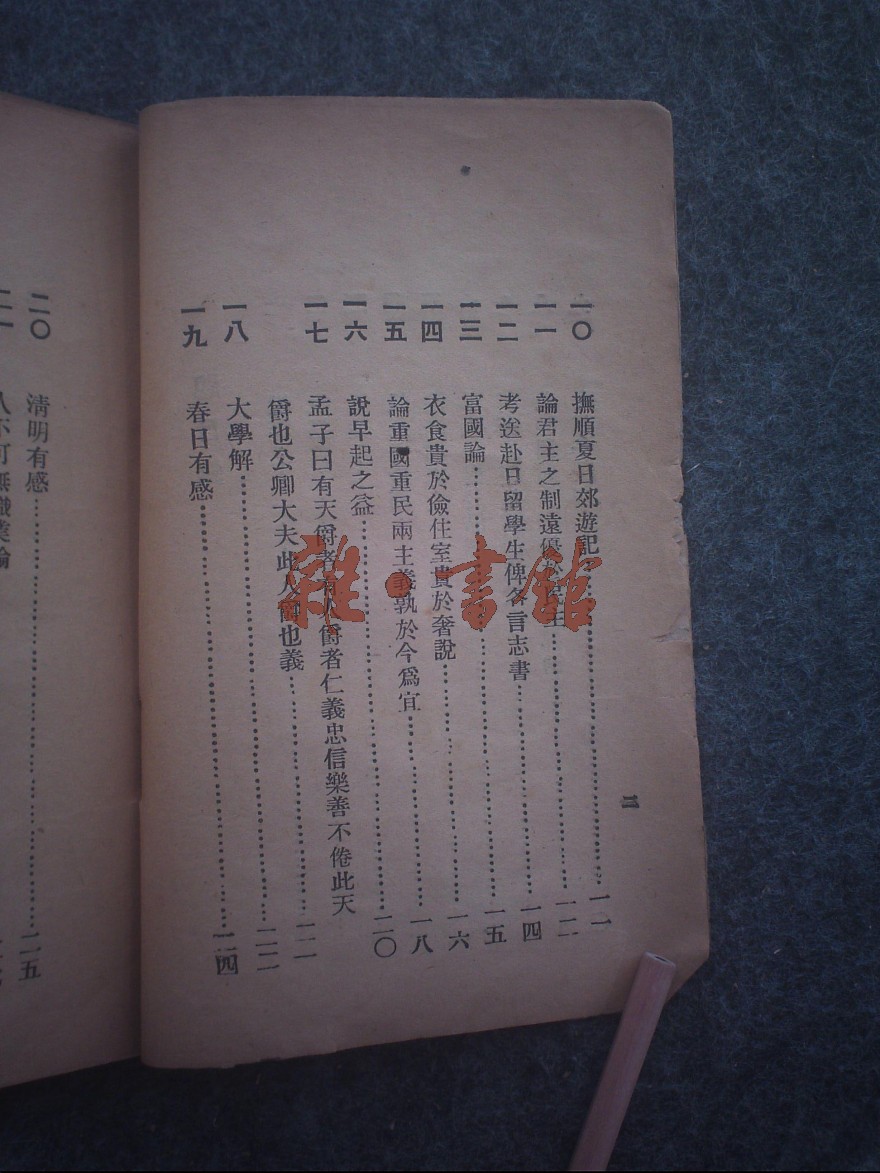 二
一〇 撫順夏日郊遊記……一一
一一 論君主之制遠優於民主……一二
一二 考送赴日留學生俾各言志書……一四
一三 富國論……一五
一四 衣食貴於儉住室貴於奢說……一六
一五 論重國重民兩主義孰於今爲宜……一八
一六 說早起之益……二〇
一七 孟子曰有天爵者有人爵者仁義忠信樂善不倦此天
爵也公卿大夫此人爵也義……二一
一八 大學解……二二
一九 春日有感……二四
二〇 淸明有感……二五
二一 人不可無職業論
雜·書館